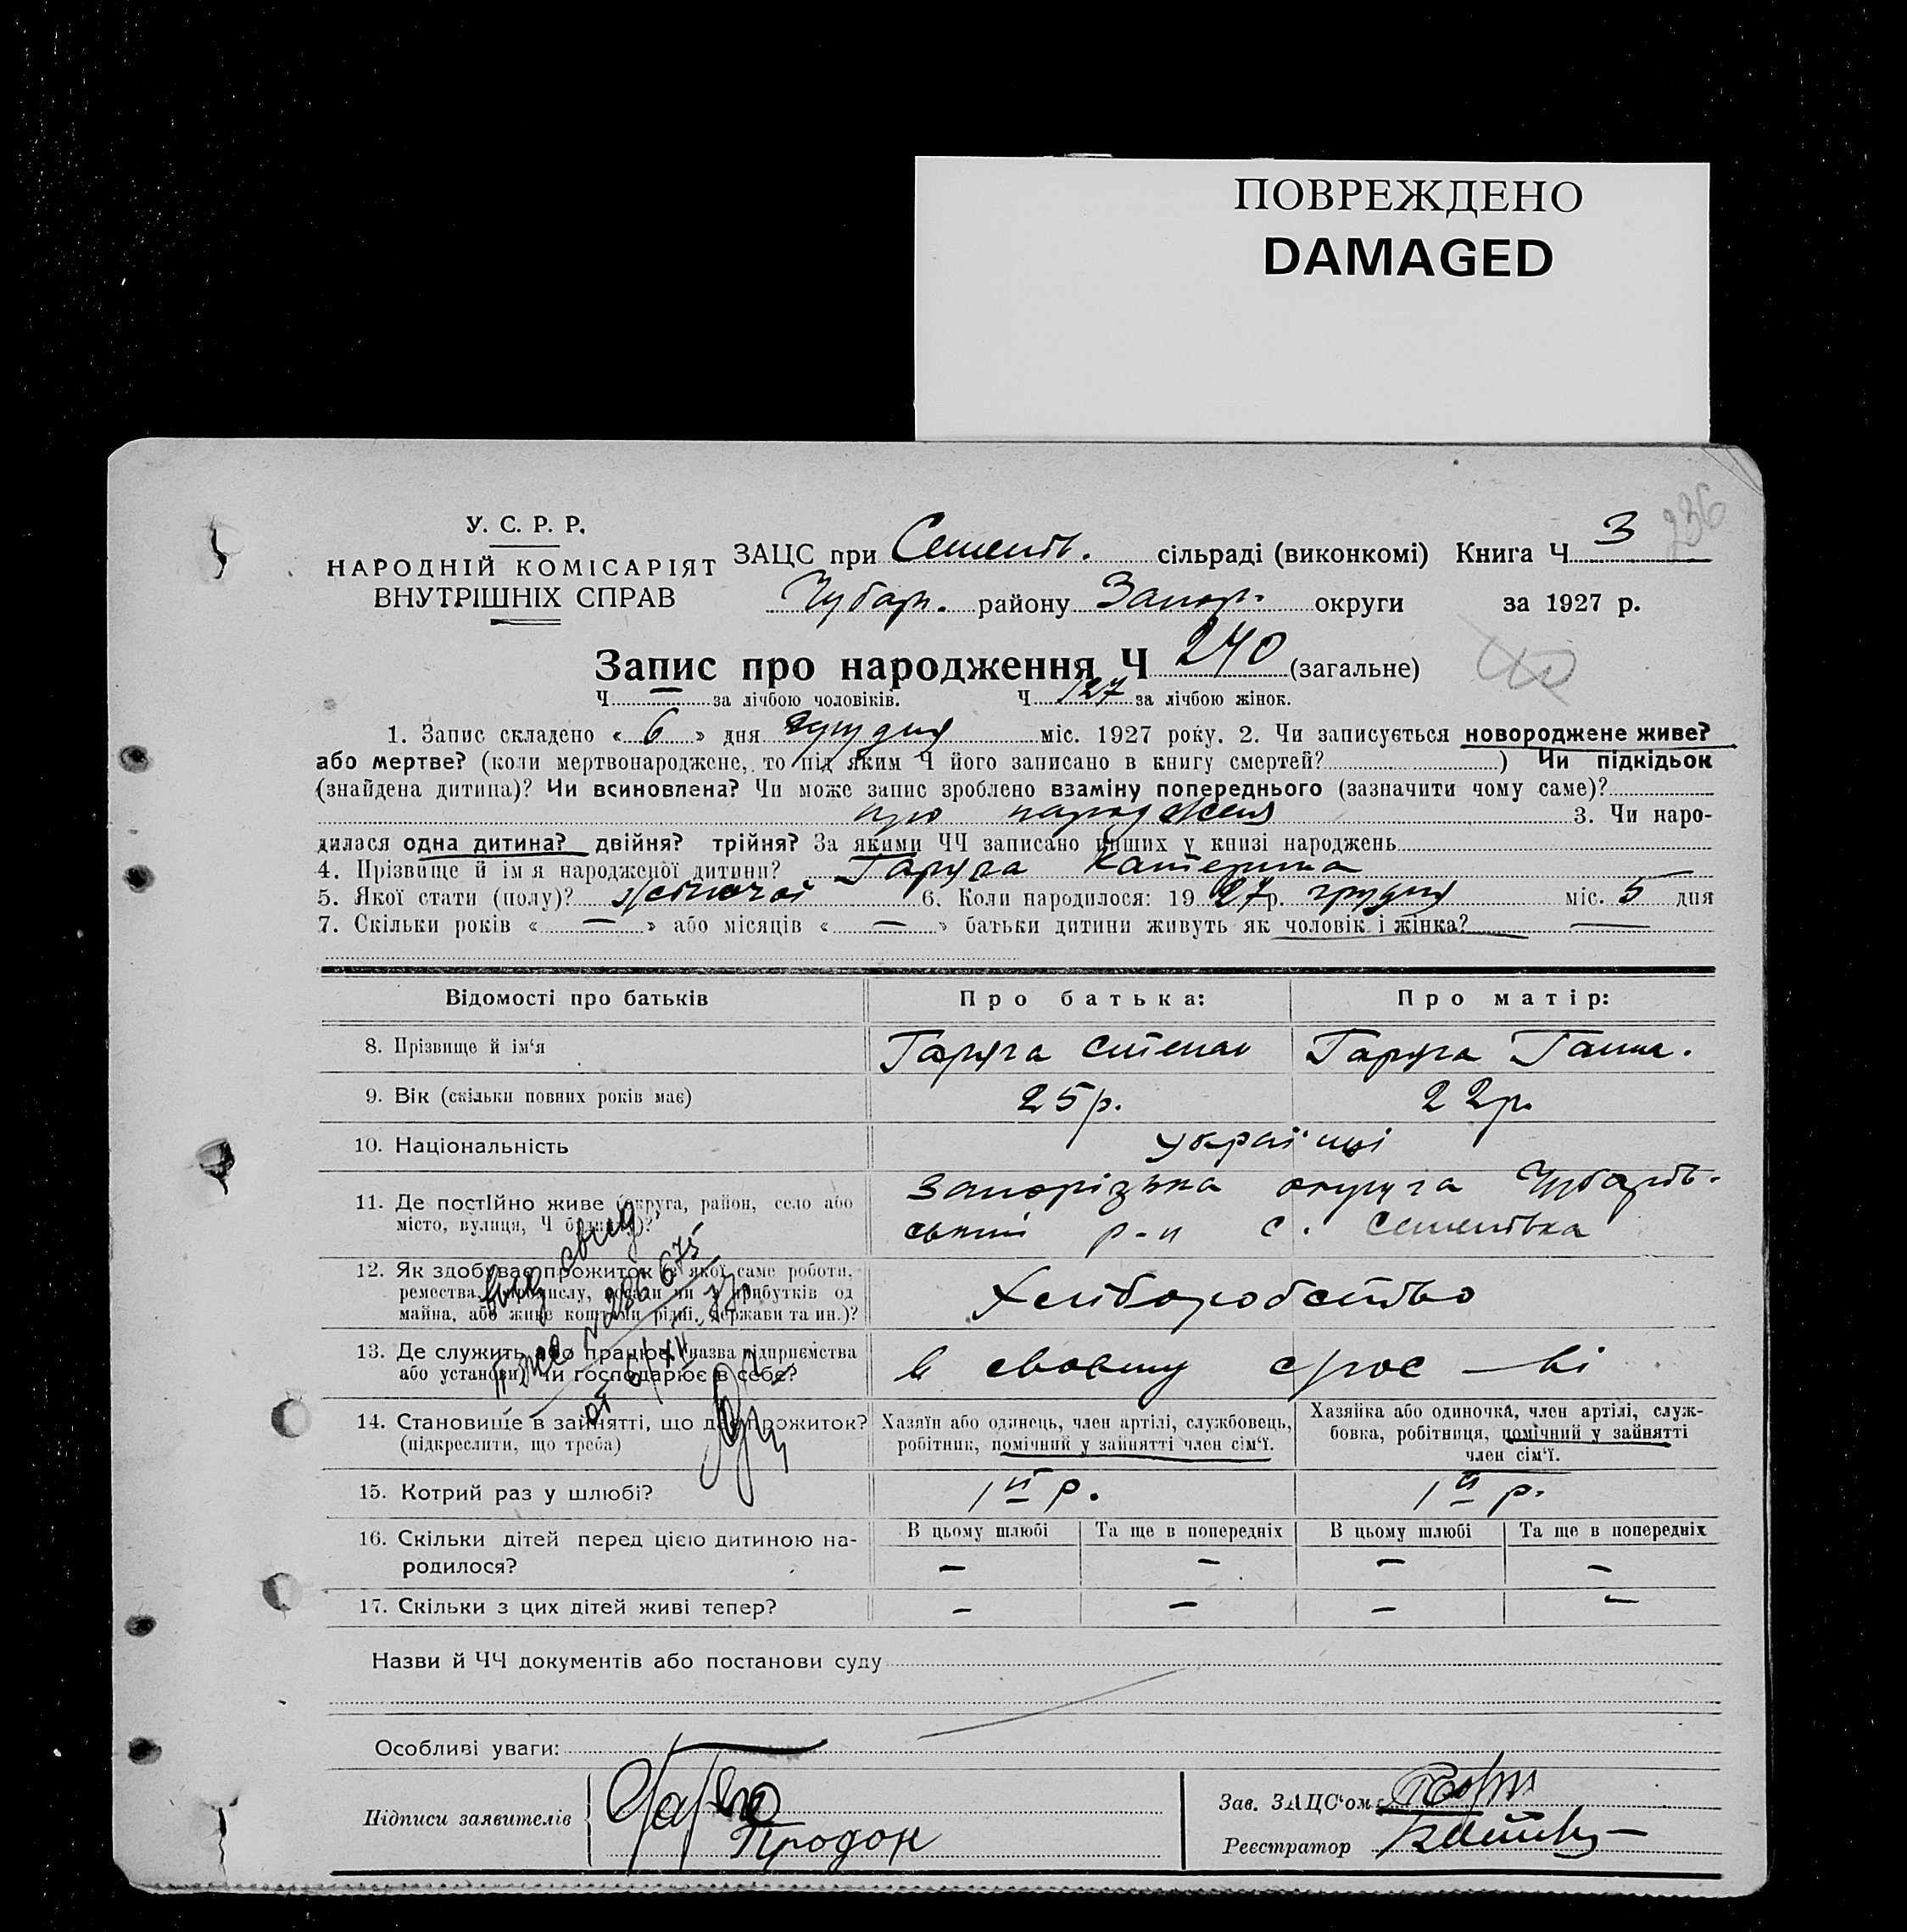 ПОВРЕЖДЕНО
DAMAGED
236
У. С. Р. Р.
НАРОДНІЙ КОМІСАРІЯТ
ВНУТРІШНІХ СПРАВ
ЗАЦС при Семенів. сільраді (виконкомі) Книга Ч 3
Чубар. району Запор. округи за 1927 р.
Запис про народження Ч 240 (загальне)
Ч — за лічбою чоловіків. Ч 127 за лічбою жінок.
1. Запис складено « 6 » дня грудня міс. 1927 року. 2. Чи записується новороджене живе?
або мертве? (коли мертвонароджене, то під яким Ч його записано в книгу смертей? ) Чи підкідьок
(знайдена дитина)? Чи всиновлена? Чи може запис зроблено взаміну попереднього (зазначити чому саме)?
про народження 3. Чи наро-
дилася одна дитина? двійня? трійня? За якими ЧЧ записано инших у книзі народжень
4. Прізвище й ім я народженої дитини? Гаруга Катерина
5. Якої стати (полу)? жіночої 6. Коли народилося: 19 27 р. грудня міс. 5 дня
7. Скільки років « — » або місяців « — » батьки дитини живуть як чоловік і жінка? —
Відомості про батьків Про батька: Про матір:
8. Прізвище й ім'я Гаруга Степан Гаруга Ганна.
9. Вік (скільки повних років має) 25 р. 22 р.
10. Національність українці
11. Де постійно живе (округа, район, село або
місто, вулиця, Ч будинку)?
Запорізька округа Чубарів-
ський р-н с. Семенівка
12. Як здобуває прожиток (з якої саме роботи,
ремества, промислу, посади чи з прибутків од
майна, або живе коштами рідні, держави та ин.)?
Хліборобство
13. Де служить або працює (назва підприємства
або установи) чи господарює в себе?
в своєму госп-ві
14. Становище в зайнятті, що дає прожиток?
(підкреслити, що треба)
Хазяїн або одинець, член артілі, службовець,
робітник, помічний у зайнятті член сім'ї.
Хазяйка або одиночка, член артілі, служ-
бовка, робітниця, помічний у зайнятті
член сім'ї.
15. Котрий раз у шлюбі? 1й р. 1й р.
16. Скільки дітей перед цією дитиною на-
родилося?
В цьому шлюбі Та ще в попередніх В цьому шлюбі Та ще в попередніх
— — — —
17. Скільки з цих дітей живі тепер? — — — —
Назви й ЧЧ документів або постанови суду
Особливі уваги:
Підписи заявителів
Продон
Зав. ЗАЦС'ом
Реєстратор